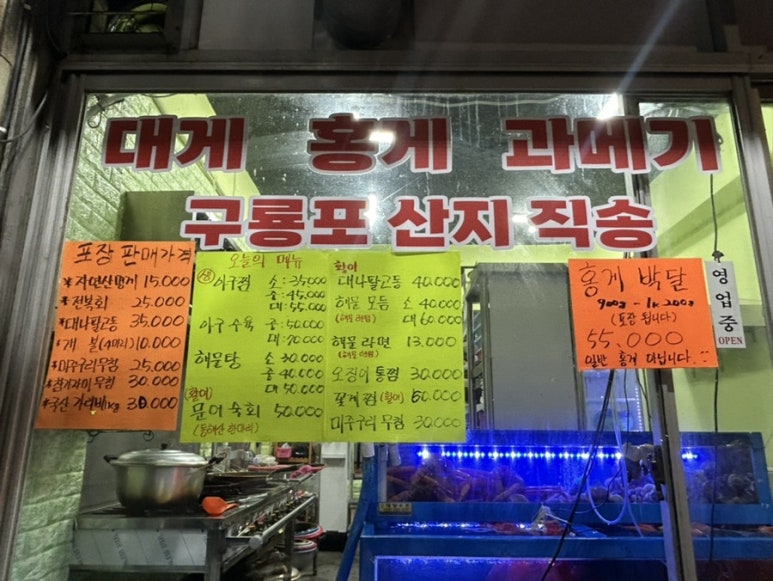 대게 홍게 과메기
구룡포 산지 직송
포장 판매가격
*자연산멍게 15.000
*전복회 25.000
*대나팔고동 35.000
*개불(4마리) 10.000
*미주구리무침 25.000
*참가자미무침 30.000
*국산 가리비1kg 30.000
오늘의 메뉴
생 아구찜 소:35.000
중:45.000
대:55.000
아구수육 중:50.000
대:70.000
해물탕 소 30.000
중 40.000
대 50.000
(활어)
문어숙회 50.000
활어
대나팔고동 40.000
해물모듬 소 40.000
대 60.000
해물라면 13.000
오징어통찜 30.000
꽃게찜 (활어) 60.000
미주구리무침 30.000
홍게 박달
900g - 1k200g
(포장 됩니다)
55.000
일반 홍게 아닙니다.
영업중
OPEN